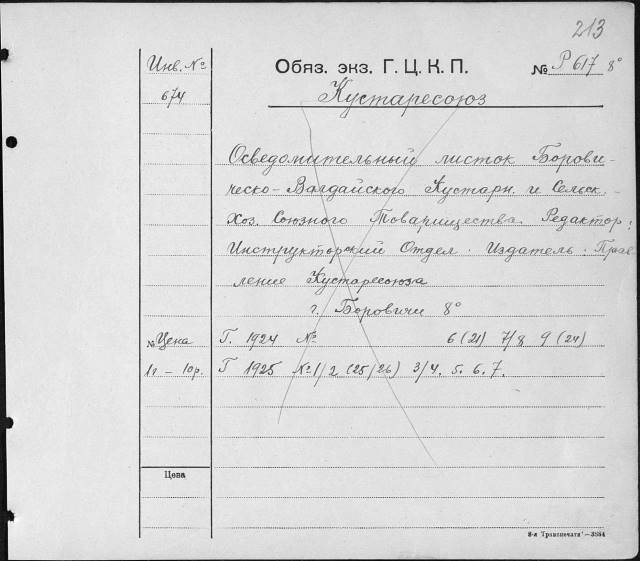 213
Инв. №
Обяз. экз. Г. Ц. К. П.
№ Р 617 8°
674
Кустаресоюз
Осведомительный листок Борови-
ческо-Валдайского Кустарн. и Сельск.
Хоз. Союзного Товарищества. Редактор:
Инструкторский Отдел. Издатель: Прав-
ление Кустаресоюза
г. Боровичи 8°
№ Цена
Г. 1924 № 6 (21) 7/8 9 (24)
1л - 10р.
Г 1925 № 1/2 (25/26) 3/4. 5. 6. 7.
Цена
8-я Транспечати — 3854